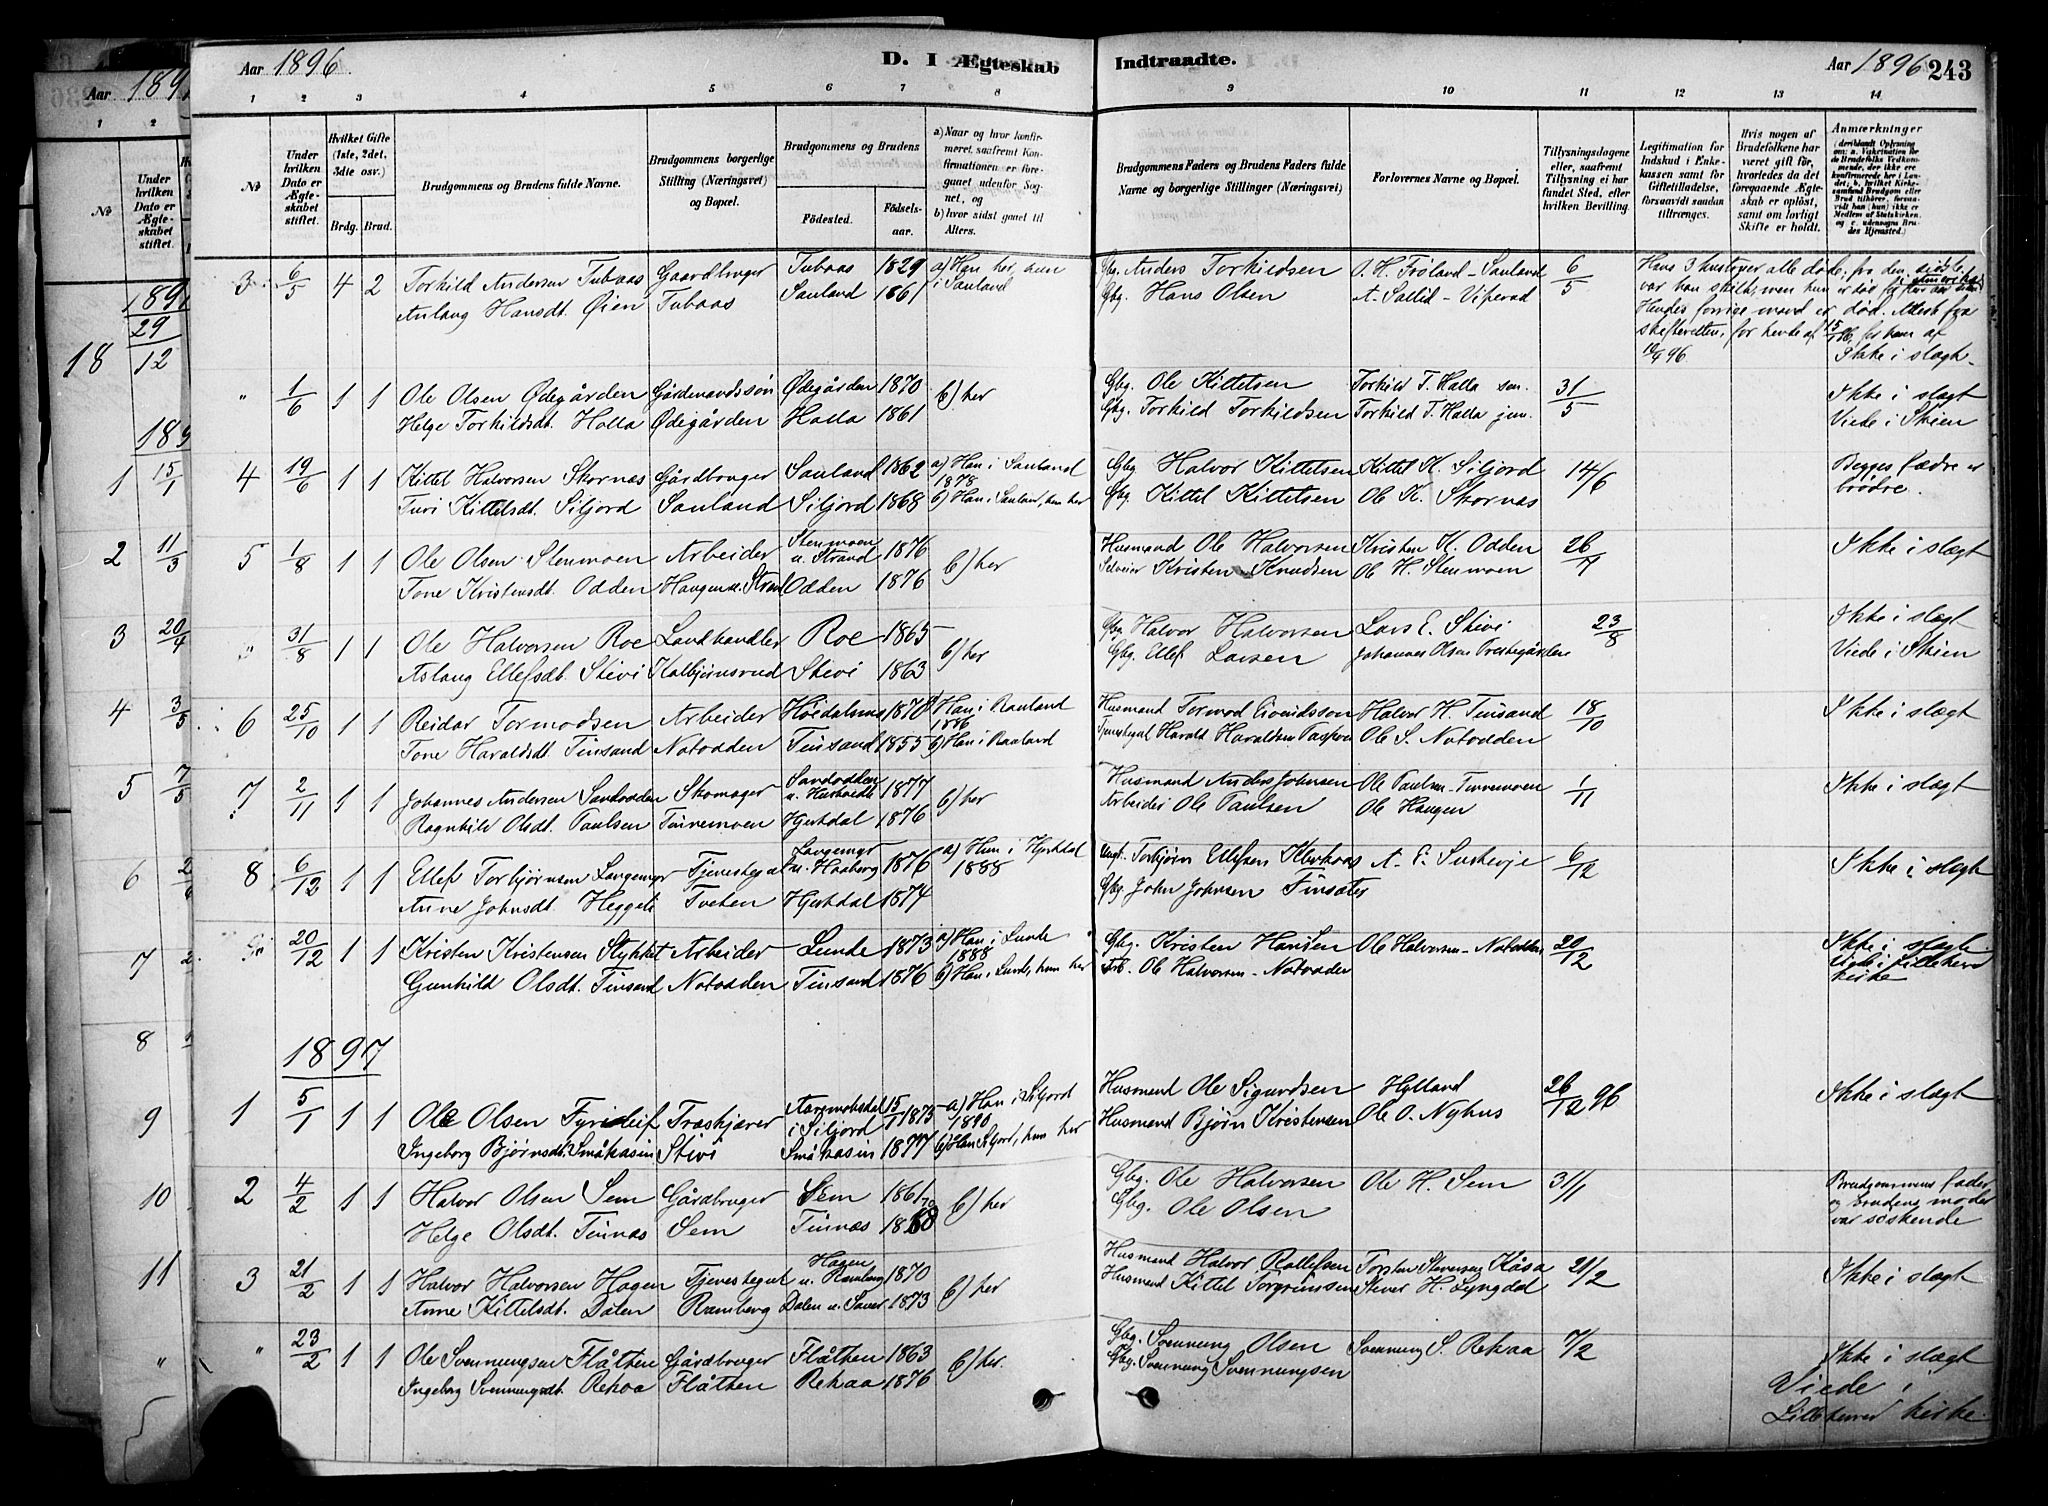 Aar 1896. D. I Ægteskab Indtraadte. Aar 1896 243
1 2 3 4 5 6 7 8 9 10 11 12 13 14
No
Under hvilken Dato er Ægteskabet stiftet.
Hvilket Gifte (1ste, 2det, 3die osv.)
Brdg. Brud.
Brudgommens og Brudens fulde Navne.
Brudgommens borgerlige Stilling (Næringsvei) og Bopæl.
Brudgommens og Brudens
Födested. Födselsaar.
a) Naar og hvor konfirmeret, saafremt Konfirmationen er foregaaet udenfor Sognet, og
b) hvor sidst gaaet til Alters.
Brudgommens Faders og Brudens Faders fulde Navne og borgerlige Stillinger (Næringsvei)
Forlovernes Navne og Bopæl.
Tillysningsdagene eller, saafremt Tillysning ei har fundet Sted, efter hvilken Bevilling.
Legitimation for Indskud i Enkekassen samt for Giftetilladelse, forsaavidt saadan tiltrænges.
Hvis nogen af Brudefolkene har været gift för, hvorledes da det foregaaende Ægteskab er oplöst, samt om lovligt Skifte er holdt.
Anmærkninger
3 6/5 4 2 Torkild Andersen Tubaas Gaardbruger Tubaas 1829 a) Han her, hun Gbg. Anders Torkildsen O. H. Frøland - Sauland 6/5 Hans 3 hustruer alle døde; fra den sidste
Aslaug Hansdt. Øien Tubaas Sauland 1861 i Sauland Gbg. Hans Olsen A. Sallid - Viperud var han skild, men hun er død
Hendes forrige mand er død. Attest fra
skifteretten, for hende af 15/1 96, for ham af
Ikke i slægt.
" 1/6 1 1 Ole Olsen Ødegården Gårdmandssøn Ødegården 1870 b) her Gbg. Ole Kittelsen Torkild T. Halla sen. 31/5 Ikke i slægt
Helge Torkildsdt. Holla Ødegården Holla 1861 Gbg. Torkild Torkildsen Torkild T. Halla jun. Viede i Skien
4 19/6 1 1 Kittel Halvorsen Skornæs Gårdbruger Sauland 1862 a) Han i Sauland 1878 Gbg Halvor Kittelsen Kittel K. Siljord 14/6 Begges fædre er
Turi Kittelsdt. Siljord Sauland Siljord 1868 b) Han i Sauland, hun her Gbg. Kittel Kittelsen Ole K. Skornæs brødre.
5 1/8 1 1 Ole Olsen Stenmoen Arbeider Stenmoen u. Strand 1876 b) her Husmand Ole Halvorsen Kristen K. Odden 26/7 Ikke i slægt
Tone Kristensdt. Odden Haugen u. Strand Odden 1876 Selveier Kristen Knudsen Ole H. Stenmoen
" 31/8 1 1 Ole Halvorsen Roe Landhandler Roe 1865 b) her Gbg Halvor Halvorsen Lars E. Stivi 23/8 Ikke i slægt
Aslaug Ellefsdt. Stivi Kalbjørnsrud Stivi 1863 Gbg. Ellef Larsen Johannes Olsen Prestegården Viede i Skien
6 25/10 1 1 Reidar Tormodsen Arbeider Høidalsmo 1870 a) Han i Rauland 1886 Husmand Tormod Eivindssøn Halvor H. Tinsand 18/10 Ikke i slægt
Tone Haraldsdt. Tinsand Notodden Tinsand 1855 b) Han i Rauland Tjenestegut Harald Haraldsen Ole S. Notodden
7 2/11 1 1 Johannes Andersen Sandodden Skomager Sandodden 1877 b) her Husmand Anders Johnsen Ole Paulsen - Tinnemoen 1/11 Ikke i slægt
Ragnhild Olsdt. Paulsen Tinnemoen Hjertdal 1876 Arbeider Ole Paulsen Ole Haugen
8 6/12 1 1 Ellef Torbjørnsen Langemyr Tjenestegut Langemyr u. Haaberg 1876 a) Hun i Hjertdal 1888 Torbjørn Ellefsen 6/12 Ikke i slægt
Anne Johnsdt. Heggeli Tveten Hjertdal 1874 Gbg. John Johnsen Tinsæter
20/12 1 1 Kristen Kristensen Stykket Arbeider Lunde 1873 a) Han i Lunde 1888 Gbg. Kristen Hansen Ole Halvorsen - Notodden 20/12 Ikke i slægt.
Gunhild Olsdt. Tinsand Notodden Tinsand 1876 b) Han i Lunde, hun her Arb. Ole Halvorsen - Notodden Viede i Lilleherd kirke
1897
1 5/1 1 1 Ole Olsen Træskjærer i Siljord 15/1 1875 a) Han i Siljord 1890 Husmand Ole Sigurdsen Hylland 26/12 96 Ikke i slægt
Ingeborg Bjørnsdt. Småkasin Stivi Småkasin 1877 b) Han Siljord, hun her Husmand Bjørn Kristensen Ole O. Nyhus
2 4/2 1 1 Halvor Olsen Sem Gårdbruger Sem 1861 b) her Gbg. Ole Halvorsen Ole H. Sem 31/1 Brudgommens fader
Helge Olsdt. Tinnæs Sem Tinnæs Gbg. Ole Olsen og brudens moder
var søskende
3 21/2 1 1 Halvor Halvorsen Hagen Tjenestegut Hagen u. Ramberg 1870 b) her Husmand Halvor Rollefsen Torsten Stenersen Kåsa 21/2 Ikke i slægt
Anne Kittelsdt. Dalen Ramberg Dalen u. Sauer 1873 Husmand Kittel Torgrimsen Stener H. Lyngdal
" 23/2 1 1 Ole Svennungsen Flåthen Gårdbruger Flåthen 1863 b) her. Gbg. Svennung Olsen Svennung S. Rekaa 7/2 Ikke i slægt
Ingeborg Svennungsdt. Rekaa Flåthen Rekaa 1876 Gbg. Svennung Svennungsen Viede i
Lilleherred kirke.